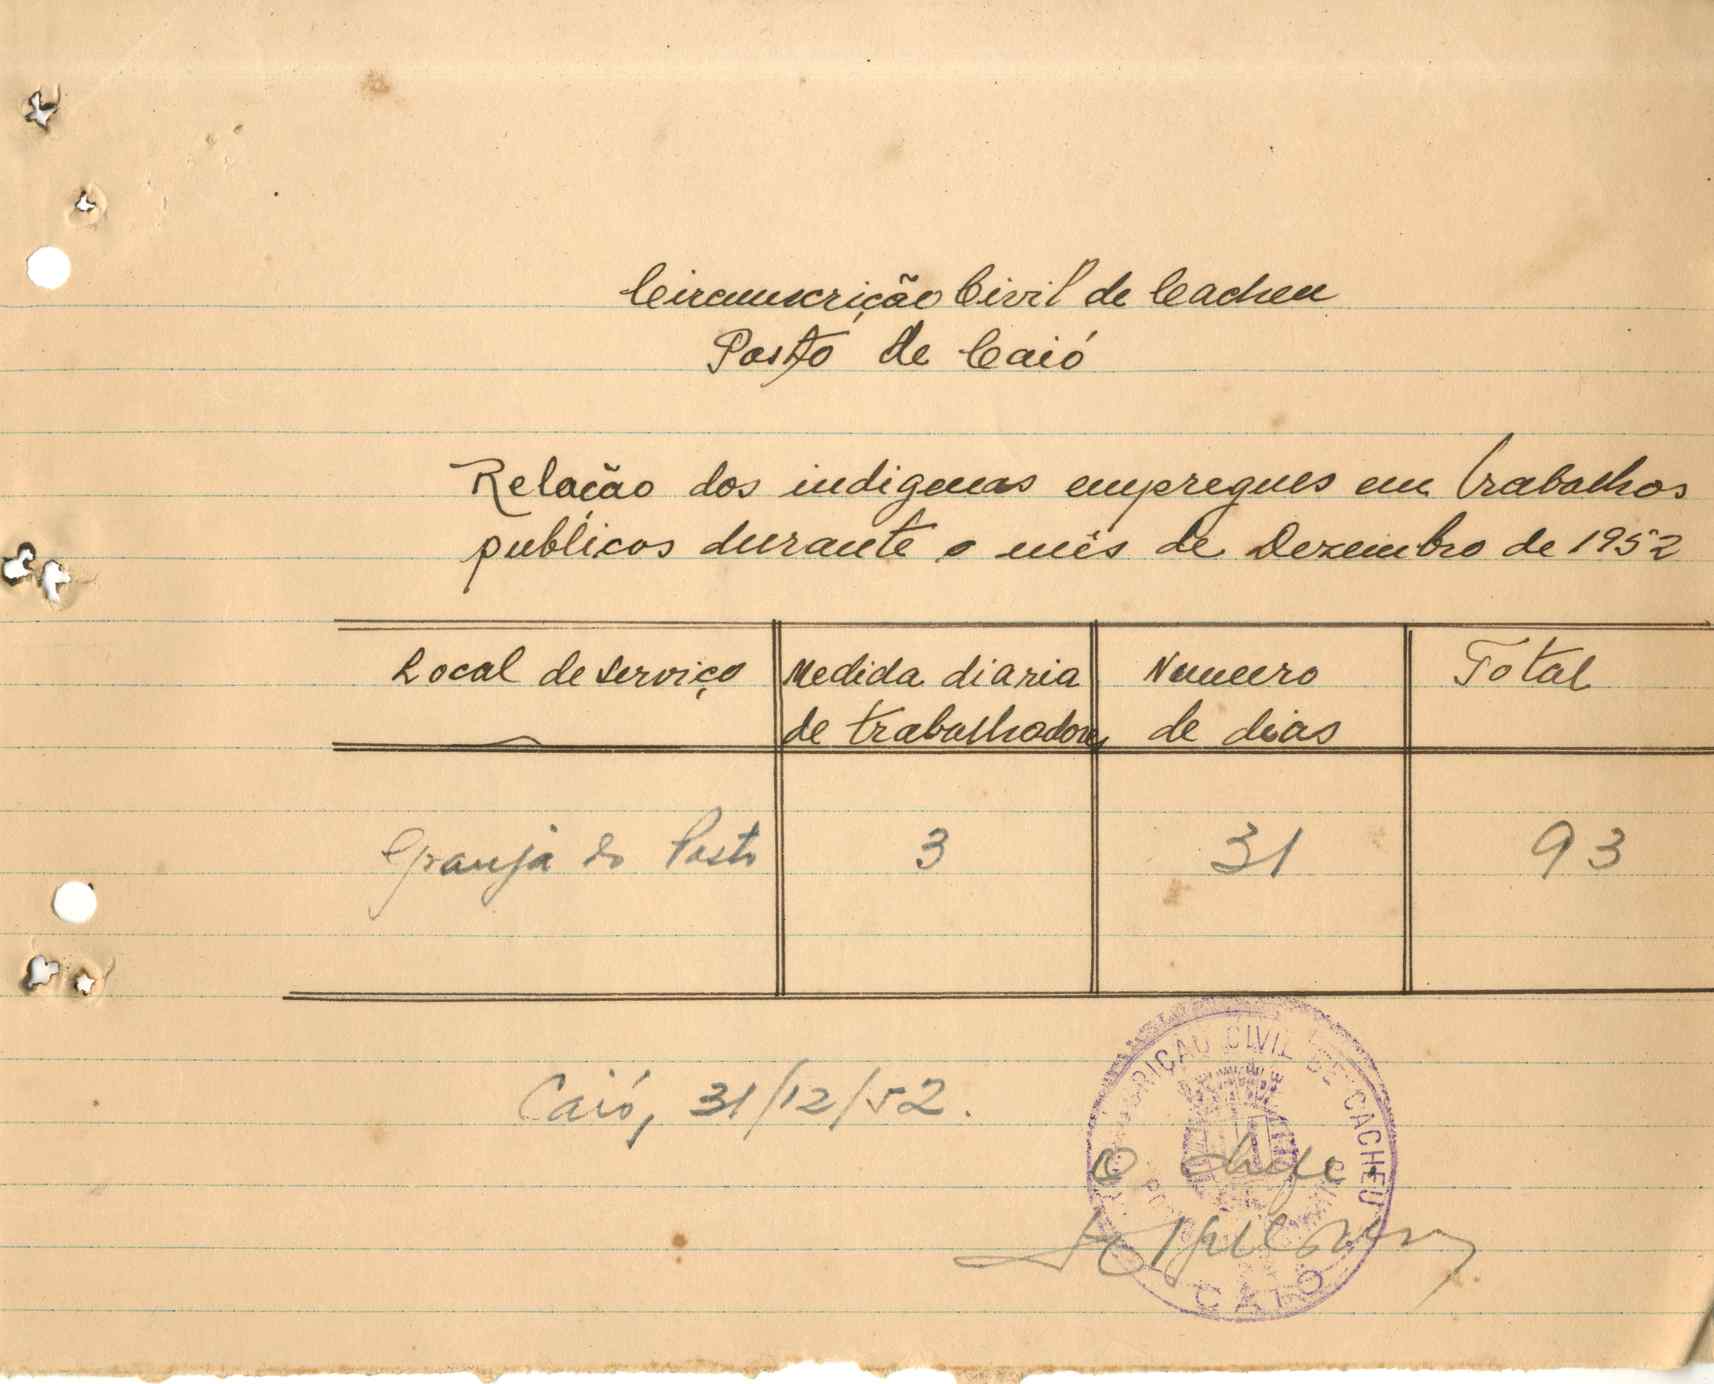 Circunscrição Civil de Cacheu
Posto de Caió
Relação dos indigenas empregues em trabalhos
publicos durante o mês de Dezembro de 1952
Local de serviço
Medida diaria
de trabalhadores
Numero
de dias
Total
Granja do Posto
3
31
93
Caió, 31/12/52.
CIVIL DE CACHEU
O chefe
CAIÓ